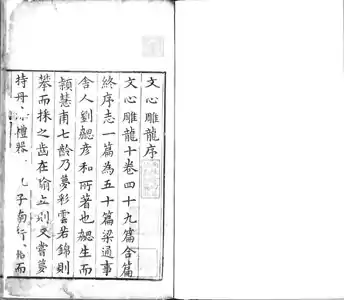 文心雕龍序
文心雕龍十卷四十九篇合篇
終序志一篇為五十篇梁通事
舍人劉勰彥和所著也勰生而
頴慧甫七齡乃夢彩雲若錦則
攀而採之齒在踰立則又嘗夢
持丹 禮器 子南行 而